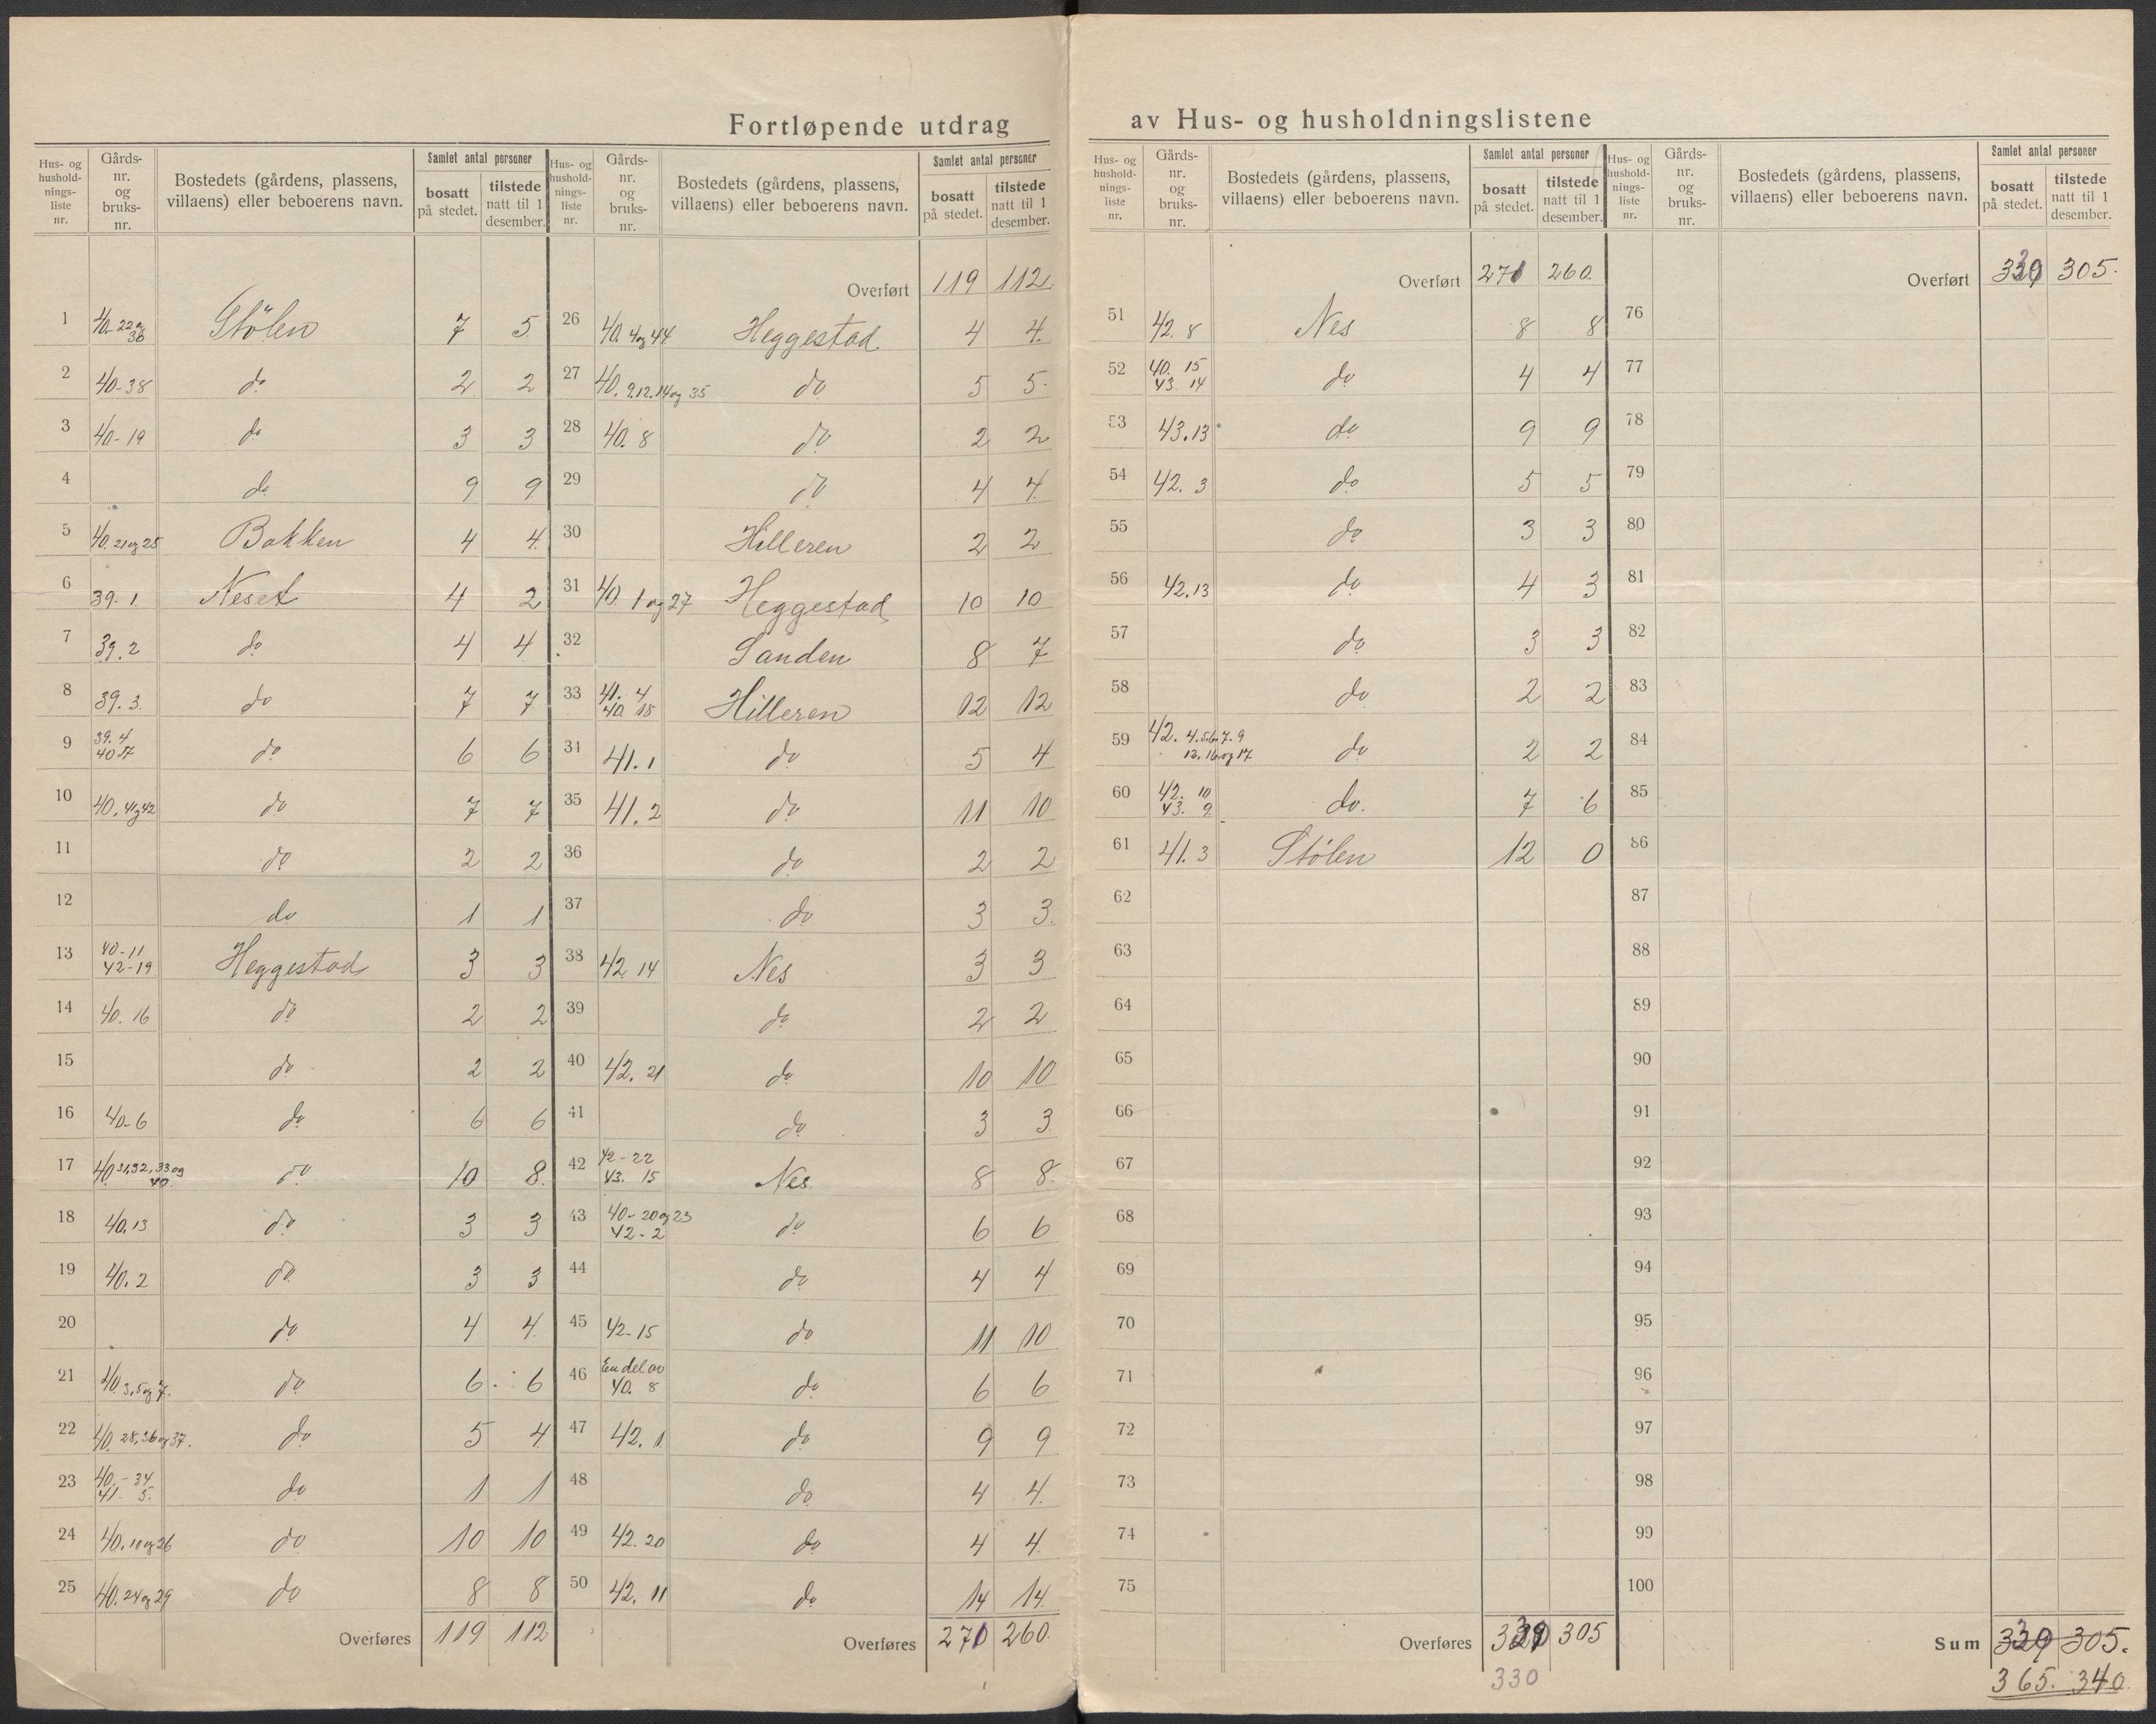 Fortløpende utdrag av Hus- og husholdningslistene
Hus- og hushold-nings-liste nr. | Gårds-nr. og bruks-nr. | Bostedets (gårdens, plassens, villaens) eller beboerens navn. | Samlet antal personer | bosatt på stedet. | tilstede natt til 1 desember.
1 40-22og36 Stölen 7 5
2 40-38 do 2 2
3 40-19 do 3 3
4 do 9 9
5 40. 21og25 Bakken 4 4
6 39. 1 Neset 4 2
7 39. 2 do 4 4
8 39. 3. do 7 7
9 39. 4 40 17 do 6 6
10 40. 41og42 do 7 7
11 do 2 2
12 do 1 1
13 40-11 42-19 Heggestad 3 3
14 40. 16 do 2 2
15 do 2 2
16 40-6 do 6 6
17 40 31,32,33og 40. do 10 8.
18 40.13 do 3 3
19 40. 2 do 3 3
20 do 4 4
21 40. 3,5og7. do 6 6
22 40. 28,36og37. do 5 4
23 40.-34 41- 5. do 1 1
24 40. 10og26 do 10 10
25 40. 24og29 do 8 8
Overføres 119 112
Hus- og hushold-nings-liste nr. | Gårds-nr. og bruks-nr. | Bostedets (gårdens, plassens, villaens) eller beboerens navn. | Samlet antal personer | bosatt på stedet. | tilstede natt til 1 desember.
Overført 119 112.
26 40. 4og44 Heggestad 4 4.
27 40. 9.12.14og35 do 5 5.
28 40. 8 do 2 2
29 do 4 4
30 Hilleren 2 2
31 40. 1og27 Heggestad 10 10
32 Sanden 8 7
33 41. 4 40. 18 Hilleren 12 12
34 41. 1 do 5 4
35 41. 2 do 11 10
36 do 2 2
37 do 3 3.
38 42 14 Nes 3 3
39 do 2 2
40 42. 21 do 10 10
41 do 3 3
42 42-22 43. 15 Nes 8 8.
43 40-20og23 42-2 do 6 6
44 do 4 4
45 42-15 do 11 10
46 En del av 40. 8 do 6 6
47 42. 1 do 9 9
48 do 4 4.
49 42. 20 do 4 4.
50 42. 11 do 14 14.
Overføres 270 260.
Hus- og hushold-nings-liste nr. | Gårds-nr. og bruks-nr. | Bostedets (gårdens, plassens, villaens) eller beboerens navn. | Samlet antal personer | bosatt på stedet. | tilstede natt til 1 desember.
Overført 260.
51 42. 8 Nes 8 8
52 40. 15 43. 14 do 4 4
53 43.13 do 9 9
54 42. 3 do 5 5
55 do 3 3
56 42.13 do 4 3
57 do 3 3
58 do 2 2
59 42. 4.5.6.7.9 12.16og17 do 2 2
60 42. 10 43. 9. do. 7 6
61 41. 3 Stölen 12 0
62
63
64
65
66
67
68
69
70
71
72
73
74
75
Overføres 305
330
Hus- og hushold-nings-liste nr. | Gårds-nr. og bruks-nr. | Bostedets (gårdens, plassens, villaens) eller beboerens navn. | Samlet antal personer | bosatt på stedet. | tilstede natt til 1 desember.
Overført 305.
76
77
78
79
80
81
82
83
84
85
86
87
88
89
90
91
92
93
94
95
96
97
98
99
100
Sum 305.
365. 340.